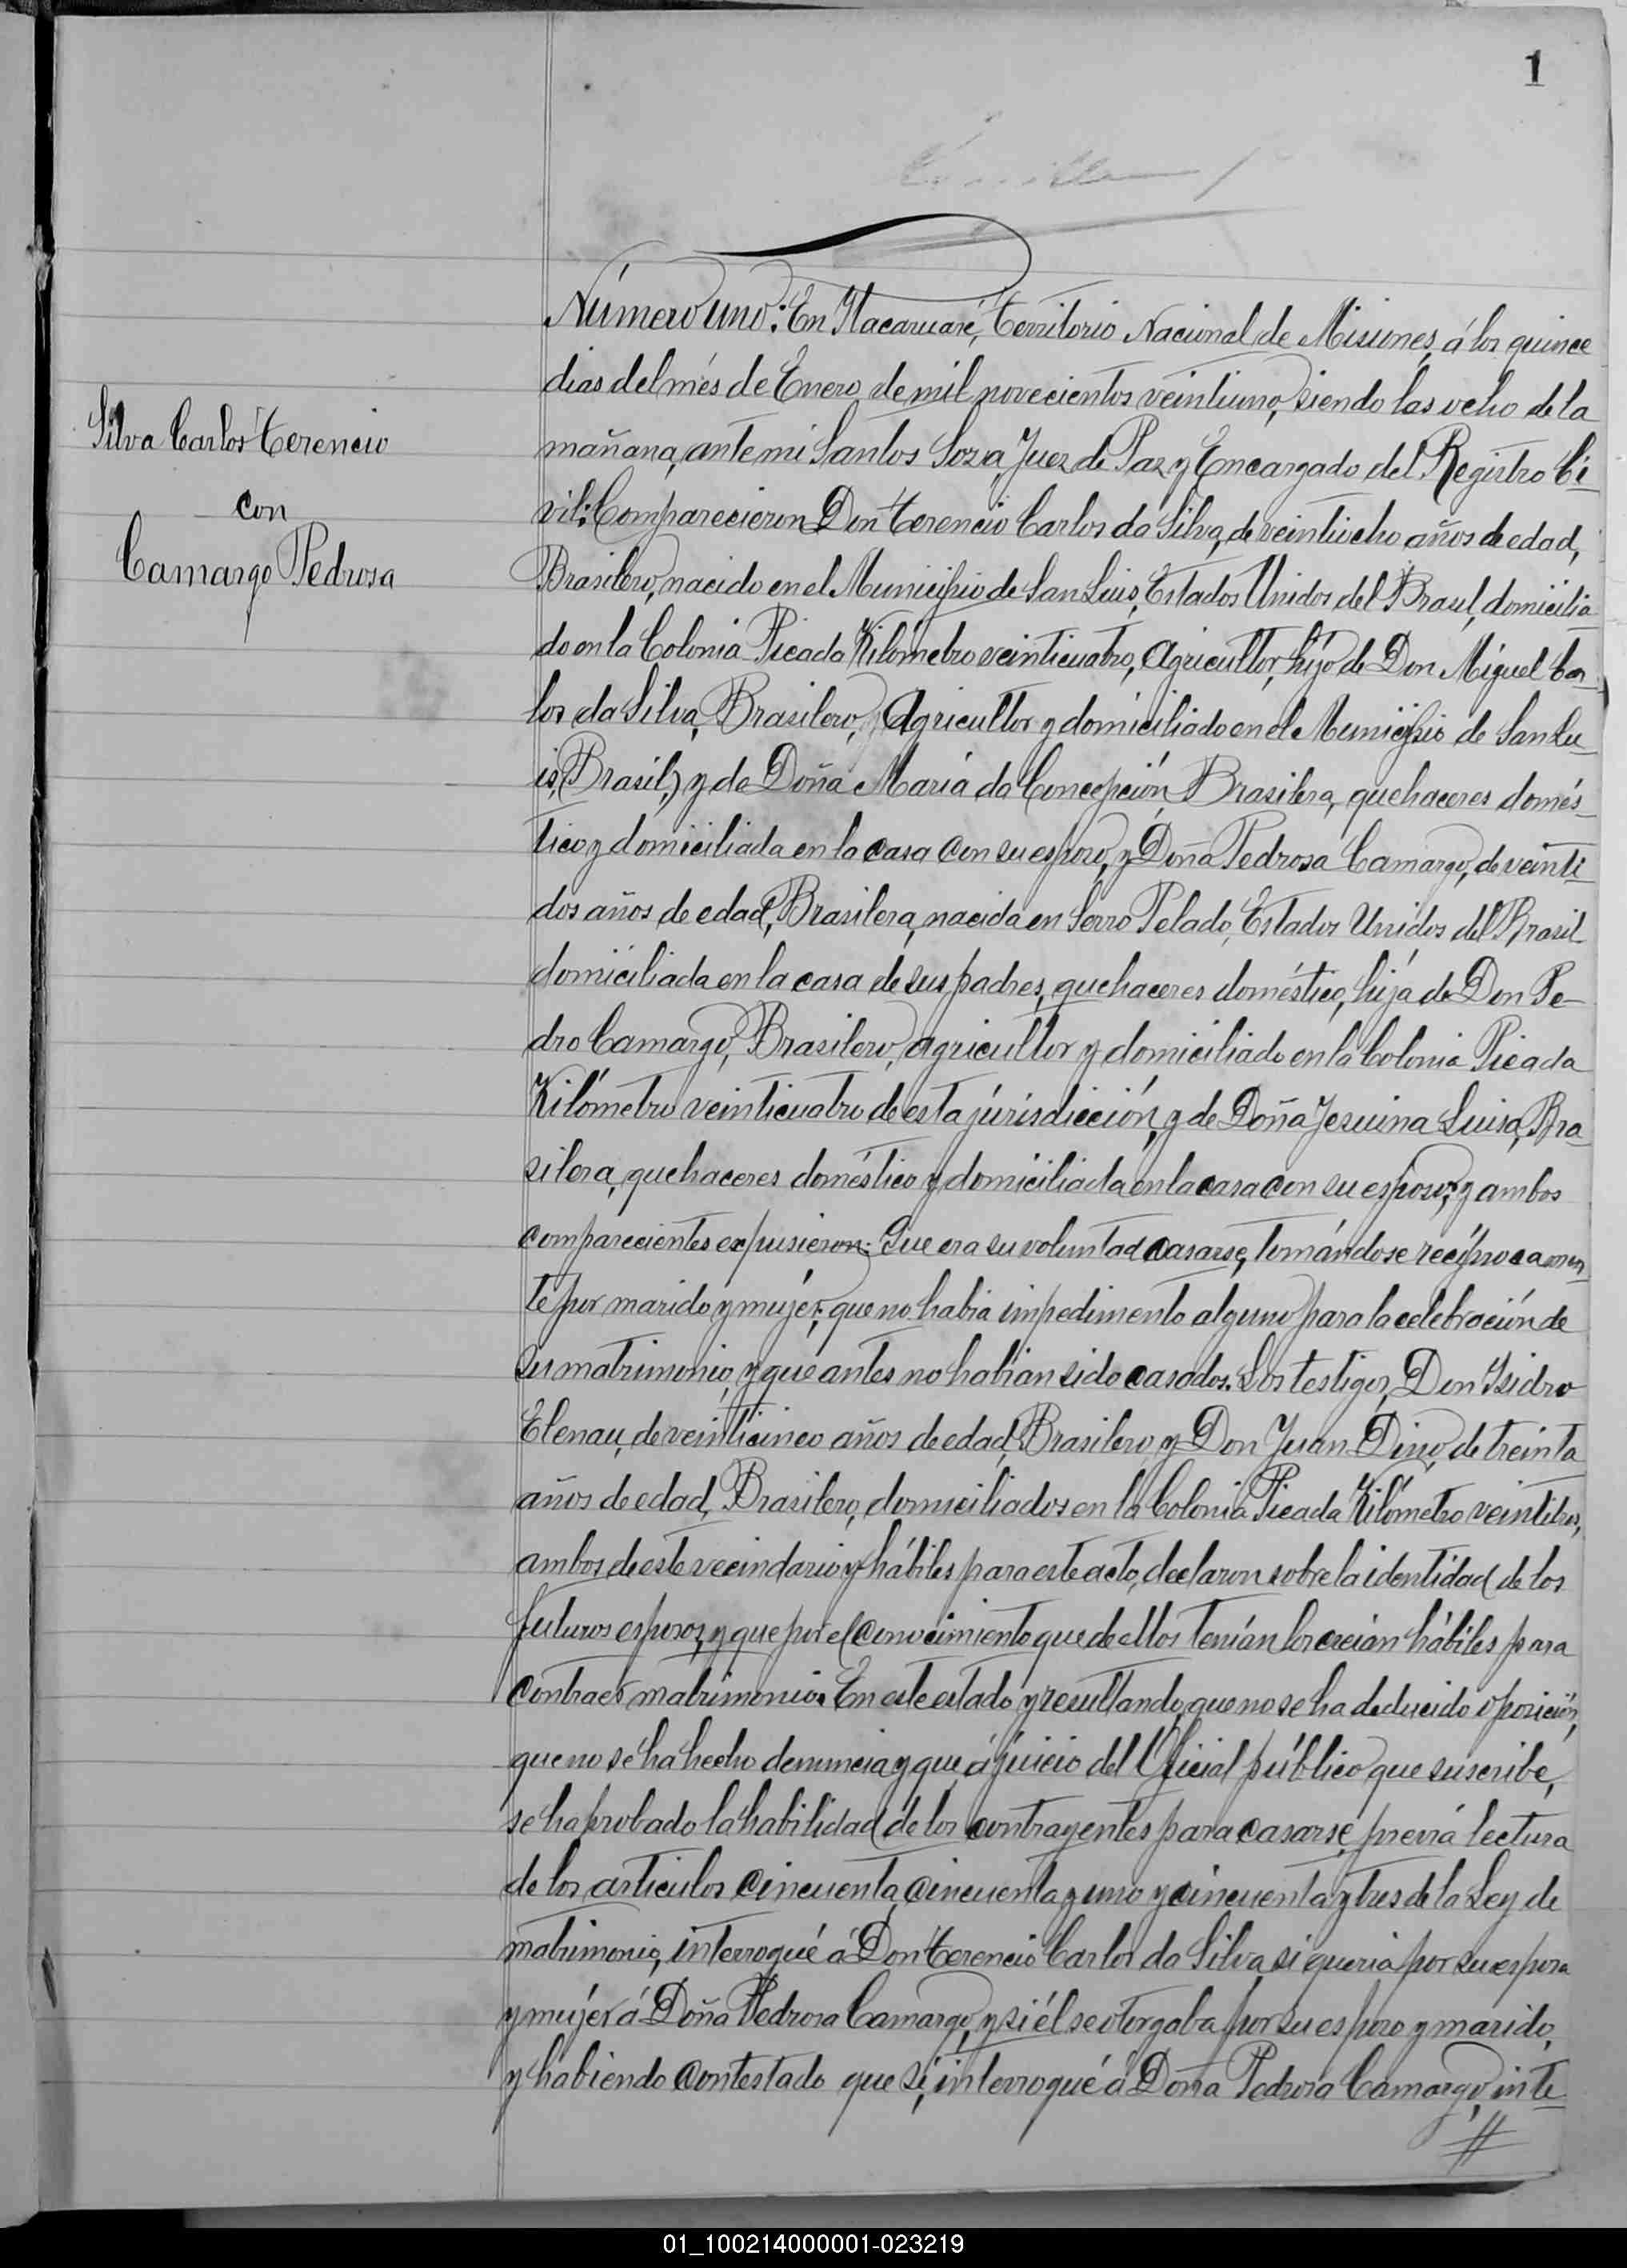 1
Número uno: En Itacaruaré, Territorio Nacional de Misiones, á los quince
dias del més de Enero de mil novecientos veintiuno, siendo las ocho de la
Silva Carlos Terencio
mañana, ante mi Santos Soza, Juez de Paz y Encargado del Registro Ci-
con
vil: Comparecieron Don Terencio Carlos da Silva, de veintiocho años de edad,
Camargo Pedrosa
Brasilero, nacido en el Municipio de San Luis, Estados Unidos del Brasil, domicilia
do en la Colonia Picada Kilómetro veinticuatro, Agricultor, hijo de Don Miguel Car-
los da Silva, Brasilero, Agricultor y domiciliado en el Municipio de San Lu-
is, (Brasil,) y de Doña María da Concepción, Brasilera, quehaceres domés-
tico y domiciliada en la casa con su esposo, y Doña Pedrosa Camargo, de veinti-
dos años de edad, Brasilera, nacida en Serro Pelado, Estados Unidos del Brasil
domiciliada en la casa de sus padres, quehaceres doméstico, hija de Don Pe-
dro Camargo, Brasilero, agricultor y domiciliado en la Colonia Picada
Kilómetro veinticuatro de esta júrisdicción, y de Doña Jesuina Luisa, Bra-
silera, quehaceres doméstico y domiciliada en la casa con su esposo; y ambos
comparecientes expusieron: Que era su voluntad casarse, tomándose recíprocamen-
te por marido y mujer; que no habia impedimento alguno para la celebración de
su matrimonio, y que antes no habian sido casados. Los testigos, Don Isidro
Elenau, de veinticinco años de edad, Brasilero, y Don Juan Dino, de treinta
años de edad, Brasilero, domiciliados en la Colonia Picada Kilómetro veintitres,
ambos de este vecindario y hábiles para este acto, declaron sobre la identidad de los
futuros esposos, y que por el conocimiento que de ellos tenían los creían hábiles para
contraer matrimonio. En este estado y resultando, que no se ha deducido oposición,
que no se ha hecho denuncia y que, á juicio del Oficial público que suscribe,
se ha probado la habilidad de los contrayentes para casarse, previa lectura
de los articulos cincuenta, cincuenta y uno y cincuenta y tres de la Ley de
matrimonio, interrogué á Don Terencio Carlos da Silva, si queria por su esposa
y mujer á Doña Pedrosa Camargo, y si él se otorgaba por su esposo y marido,
y habiendo contestado que sí, interrogué á Doña Pedrosa Camargo, inte-
//
01_100214000001-023219